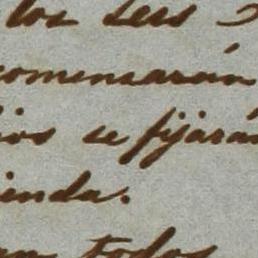 los seis
comensarán
ios se fijará
ienda.
todos